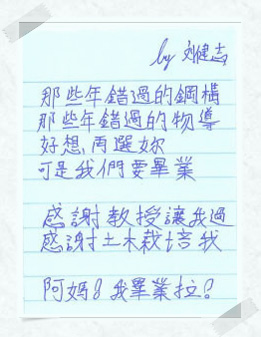 by 劉健志
那些年錯過的鋼構
那些年錯過的物導
好想再選妳
可是我們要畢業
感謝教授讓我過
感謝土木栽培我
阿媽!我畢業拉!